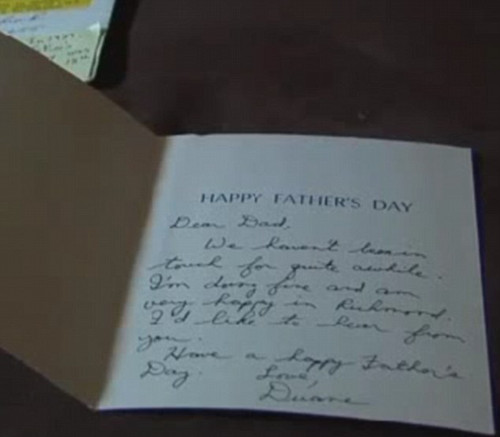 HAPPY FATHER'S DAY
Dear Dad,
We haven't been in
touch for quite awhile.
I'm doing fine and am
very happy in Richmond.
I'd like to hear from
you.
Have a happy Father's
Day.
Love,
Duane